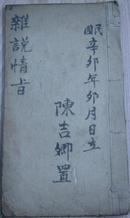 民國辛卯年卯月日立
陳吉卿置
雜説情旨